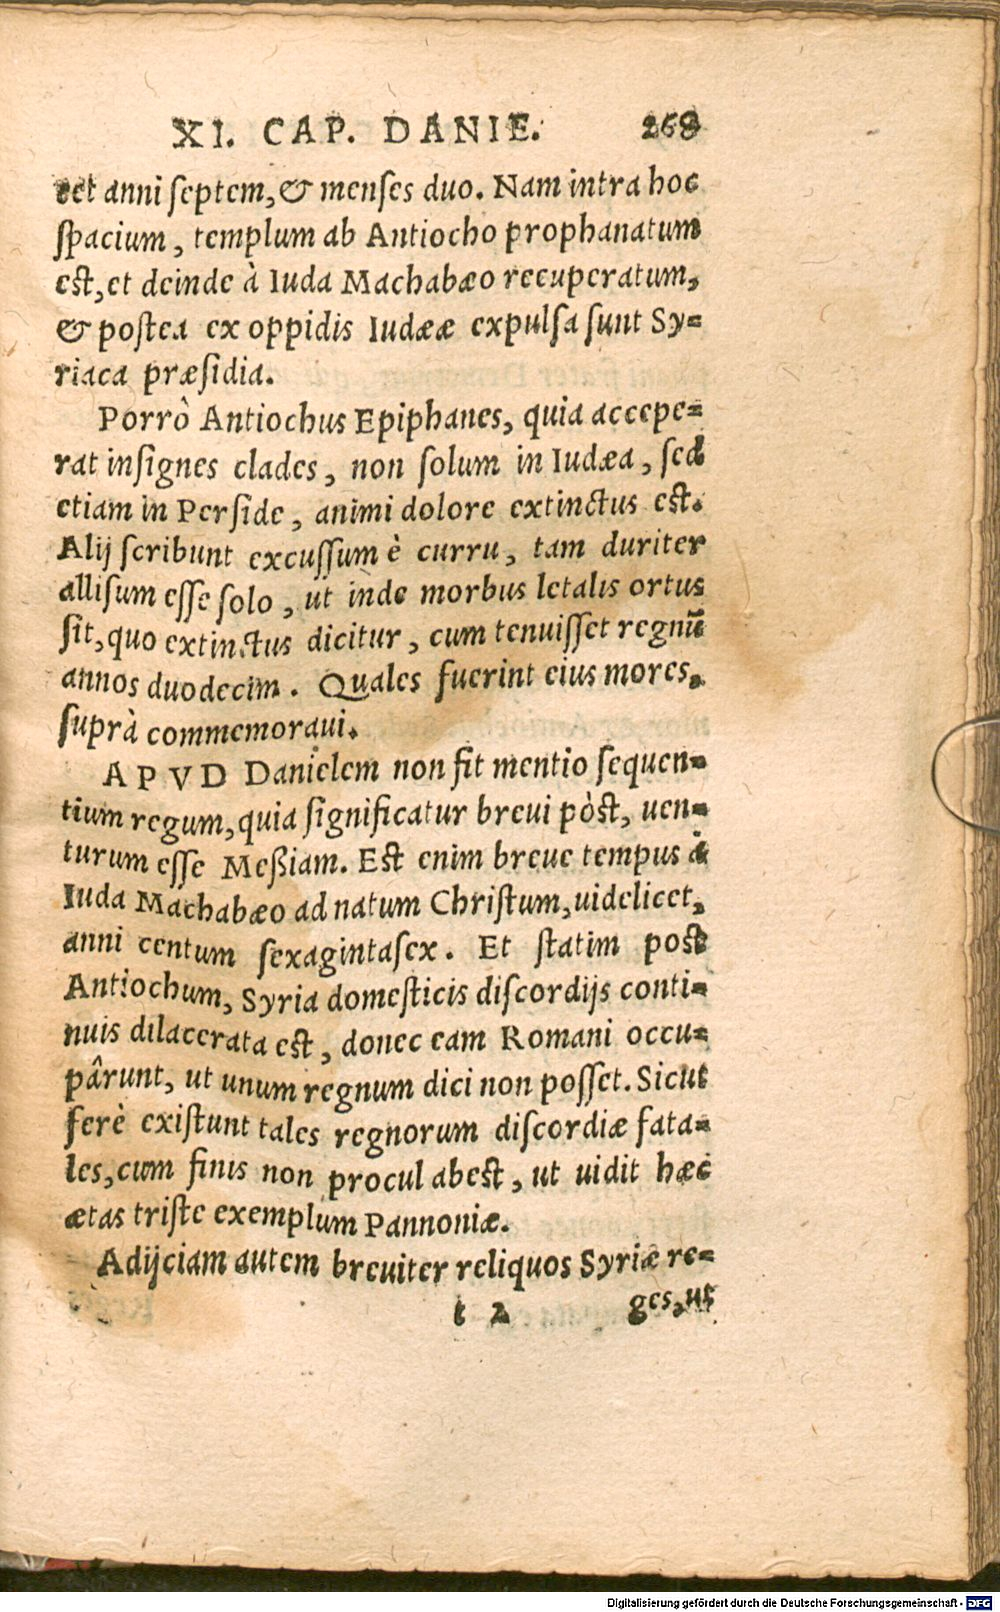 XI. CAP. DANIE. 268
cet anni ſeptem, & menſes duo. Nam intra hoc
ſpacium, templum ab Antiocho prophanatum
eſt, et deinde à Iuda Machabæo recuperatum,
& poſtea ex oppidis Iudææ expulſa ſunt Sy=
riaca præſidia.
Porrò Antiochus Epiphanes, quia accepe=
rat inſignes clades, non ſolum in Iudæa, ſed
etiam in Perſide, animi dolore extinctus eſt.
Alij ſcribunt excuſſum è curru, tam duriter
alliſum eſſe ſolo, ut inde morbus letalis ortus
ſit, quo extinctus dicitur, cum tenuiſſet regnū
annos duodecim. Quales fuerint eius mores,
ſuprà commemoraui.
APVD Danielem non fit mentio ſequen=
tium regum, quia ſignificatur breui pòſt, uen=
turum eſſe Meßiam. Eſt enim breue tempus à
Iuda Machabæo ad natum Chriſtum, uidelicet,
anni centum ſexagintaſex. Et ſtatim poſt
Antiochum, Syria domeſticis diſcordijs conti=
nuis dilacerata eſt, donec eam Romani occu=
pârunt, ut unum regnum dici non poſſet. Sicut
ferè exiſtunt tales regnorum diſcordiæ fata=
les, cum finis non procul abeſt, ut uidit hæc
ætas triſte exemplum Pannoniæ.
Adijciam autem breuiter reliquos Syriæ re=
t 2 ges, ut
Digitalisierung gefördert durch die Deutsche Forschungsgemeinschaft - DFG